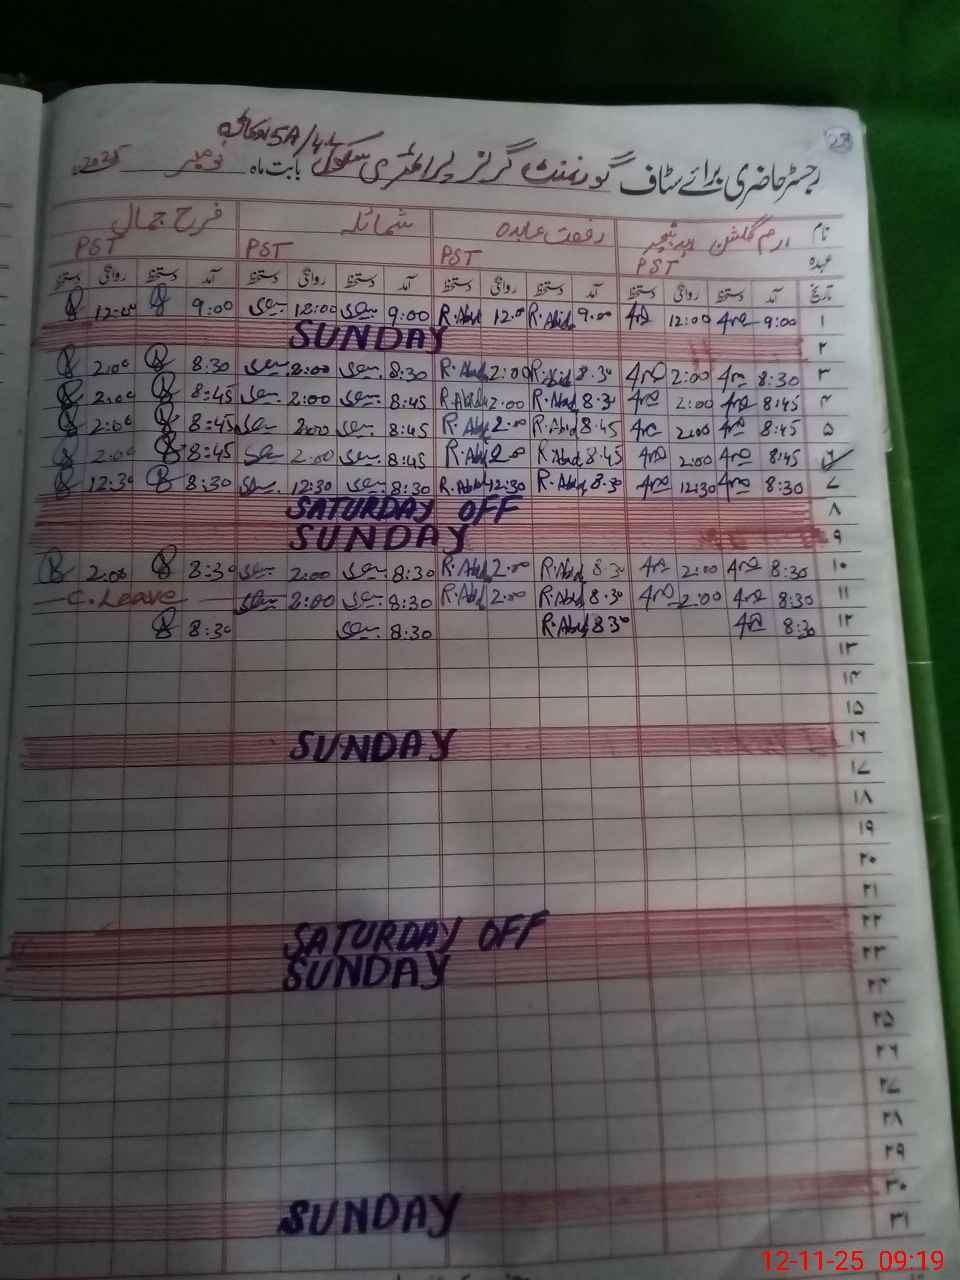 23
رجسٹر حاضری برائے سٹاف گورنمنٹ گرلز پرائمری سکول 5A/4.L اوکاڑہ بابت ماہ نومبر 2025
نام ارم گلشن ہیڈ ٹیچر رفعت عابدہ شمائلہ فرح جمال
عہدہ PST PST PST PST
تاریخ آمد دستخط روانگی دستخط آمد دستخط روانگی دستخط آمد دستخط روانگی دستخط آمد دستخط روانگی دستخط
۱ 9:00 12:00 9:00 R.Abid 12:00 R.Abid 9:00 12:00 9:00 12:00
۲ SUNDAY
۳ 8:30 2:00 8:30 R.Abid 2:00 R.Abid 8:30 2:00 8:30 2:00
۴ 8:45 2:00 8:30 R.Abid 2:00 R.Abid 8:45 2:00 8:45 2:00
۵ 8:45 2:00 8:45 R.Abid 2:00 R.Abid 8:45 2:00 8:45 2:00
۶ 8:45 2:00 8:45 R.Abid 2:00 R.Abid 8:45 2:00 8:45 2:00
۷ 8:30 12:30 8:30 R.Abid 12:30 R.Abid 8:30 12:30 8:30 12:30
۸ SATURDAY OFF
۹ SUNDAY
۱۰ 8:30 2:00 8:30 R.Abid 2:00 R.Abid 8:30 2:00 8:30 2:00
۱۱ 8:30 2:00 8:30 R.Abid 2:00 R.Abid 8:30 2:00 C.Leave
۱۲ 8:30 8:30 R.Abid 8:30 8:30
۱۳
۱۴
۱۵
۱۶ SUNDAY
۱۷
۱۸
۱۹
۲۰
۲۱
۲۲ SATURDAY OFF
۲۳ SUNDAY
۲۴
۲۵
۲۶
۲۷
۲۸
۲۹
۳۰ SUNDAY
۳۱
12-11-25 09:19